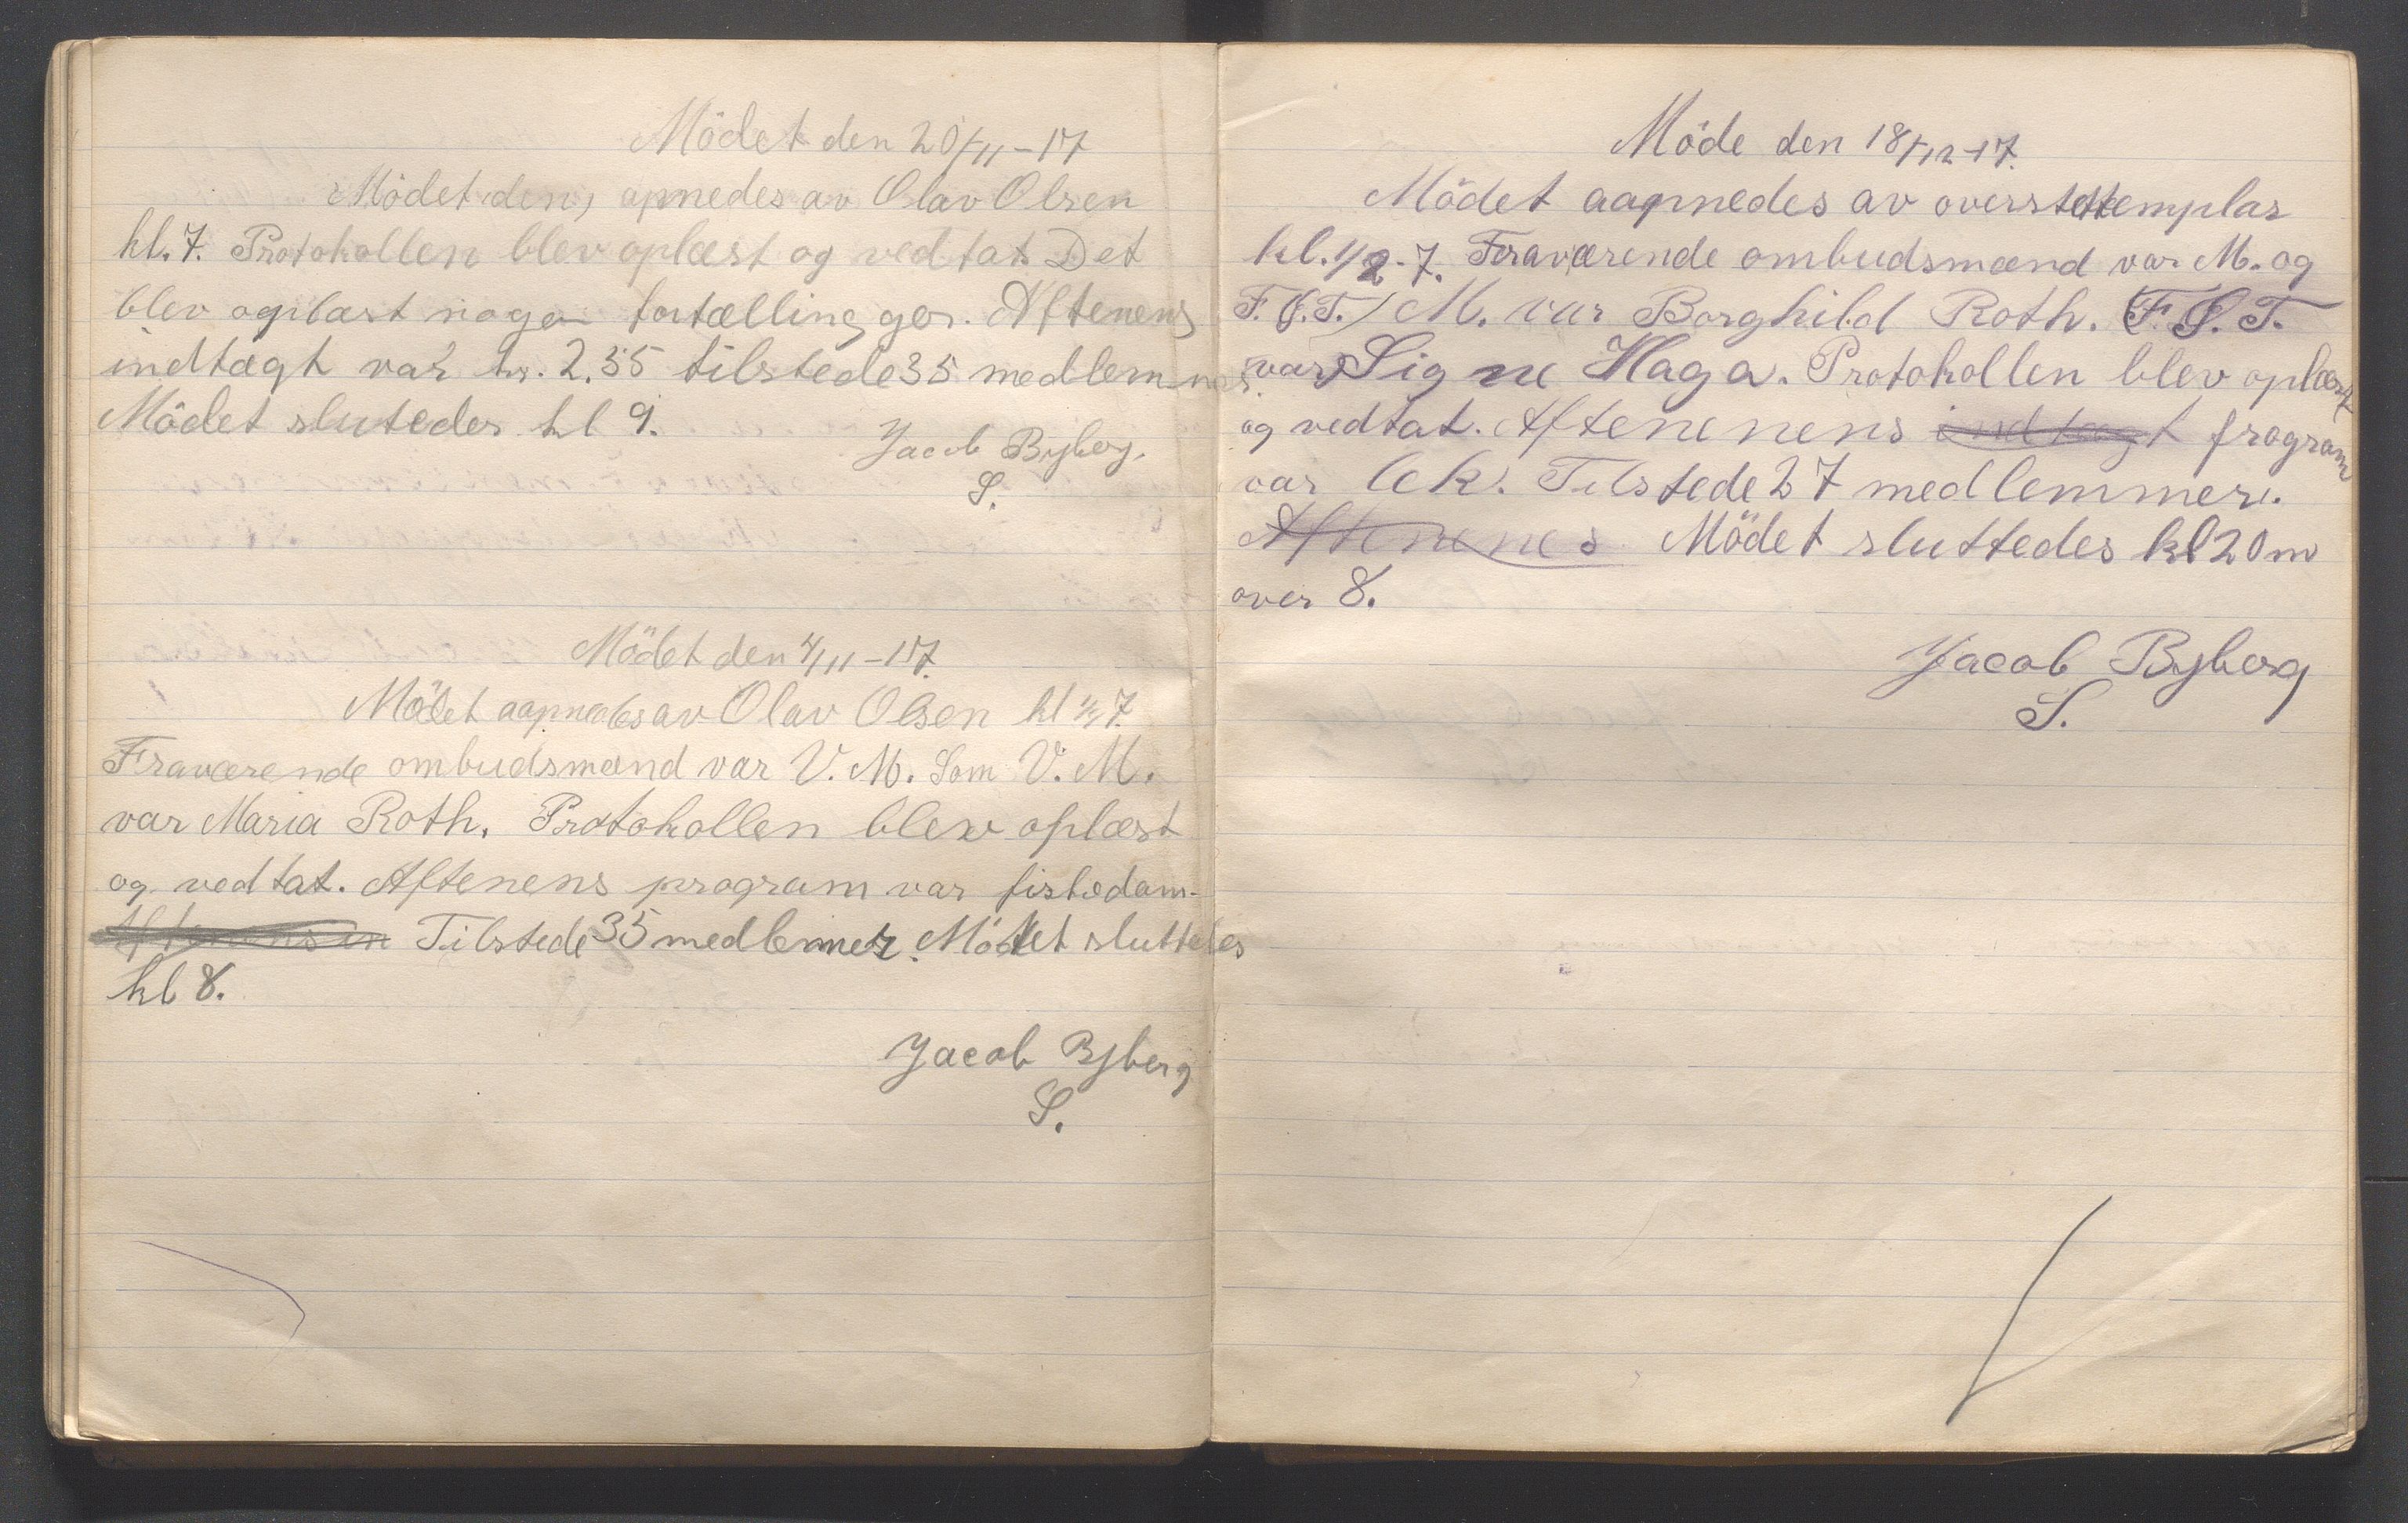 Mödet den 20/11-17
Mödet den, apnedes av Olav Olsen
kl. 7. Protokollen blev oplæst og vedtat. Det
blev oplæst nogen fortællingger. Aftenens
indtægt var kr. 2.35 tilstede 35 medlemmer.
Mödet slutedes kl 9.
Jacob Byberg.
S.
Mödet den 4/11-17.
Mödet aapnedes av Olav Olsen kl ½7.
Fraværende ombudsmænd var V. M. Som V. M.
var Maria Roth. Protokollen blev oplæst
og vedtat. Aftenens program var fistedam.
Aftenensen Tilstede 35 medlemmer. Mödet sluttedes
kl 8.
Jacob Byberg
S.
Möde den 18/12-17.
Mödet aapnedes av overstettemplar
kl. 1/2-7. Fraværende ombudsmænd var M. og
F.O.T. / M. var Borghild Roth. F.O.T.
var Signe Haga. Protokollen blev oplæst
og vedtat. Aftenenens indtægt program
var lek. Tilstede 27 medlemmer.
Aftenenes Mödet sluttedes kl 20 m
over 8.
Jacob Byberg
S.